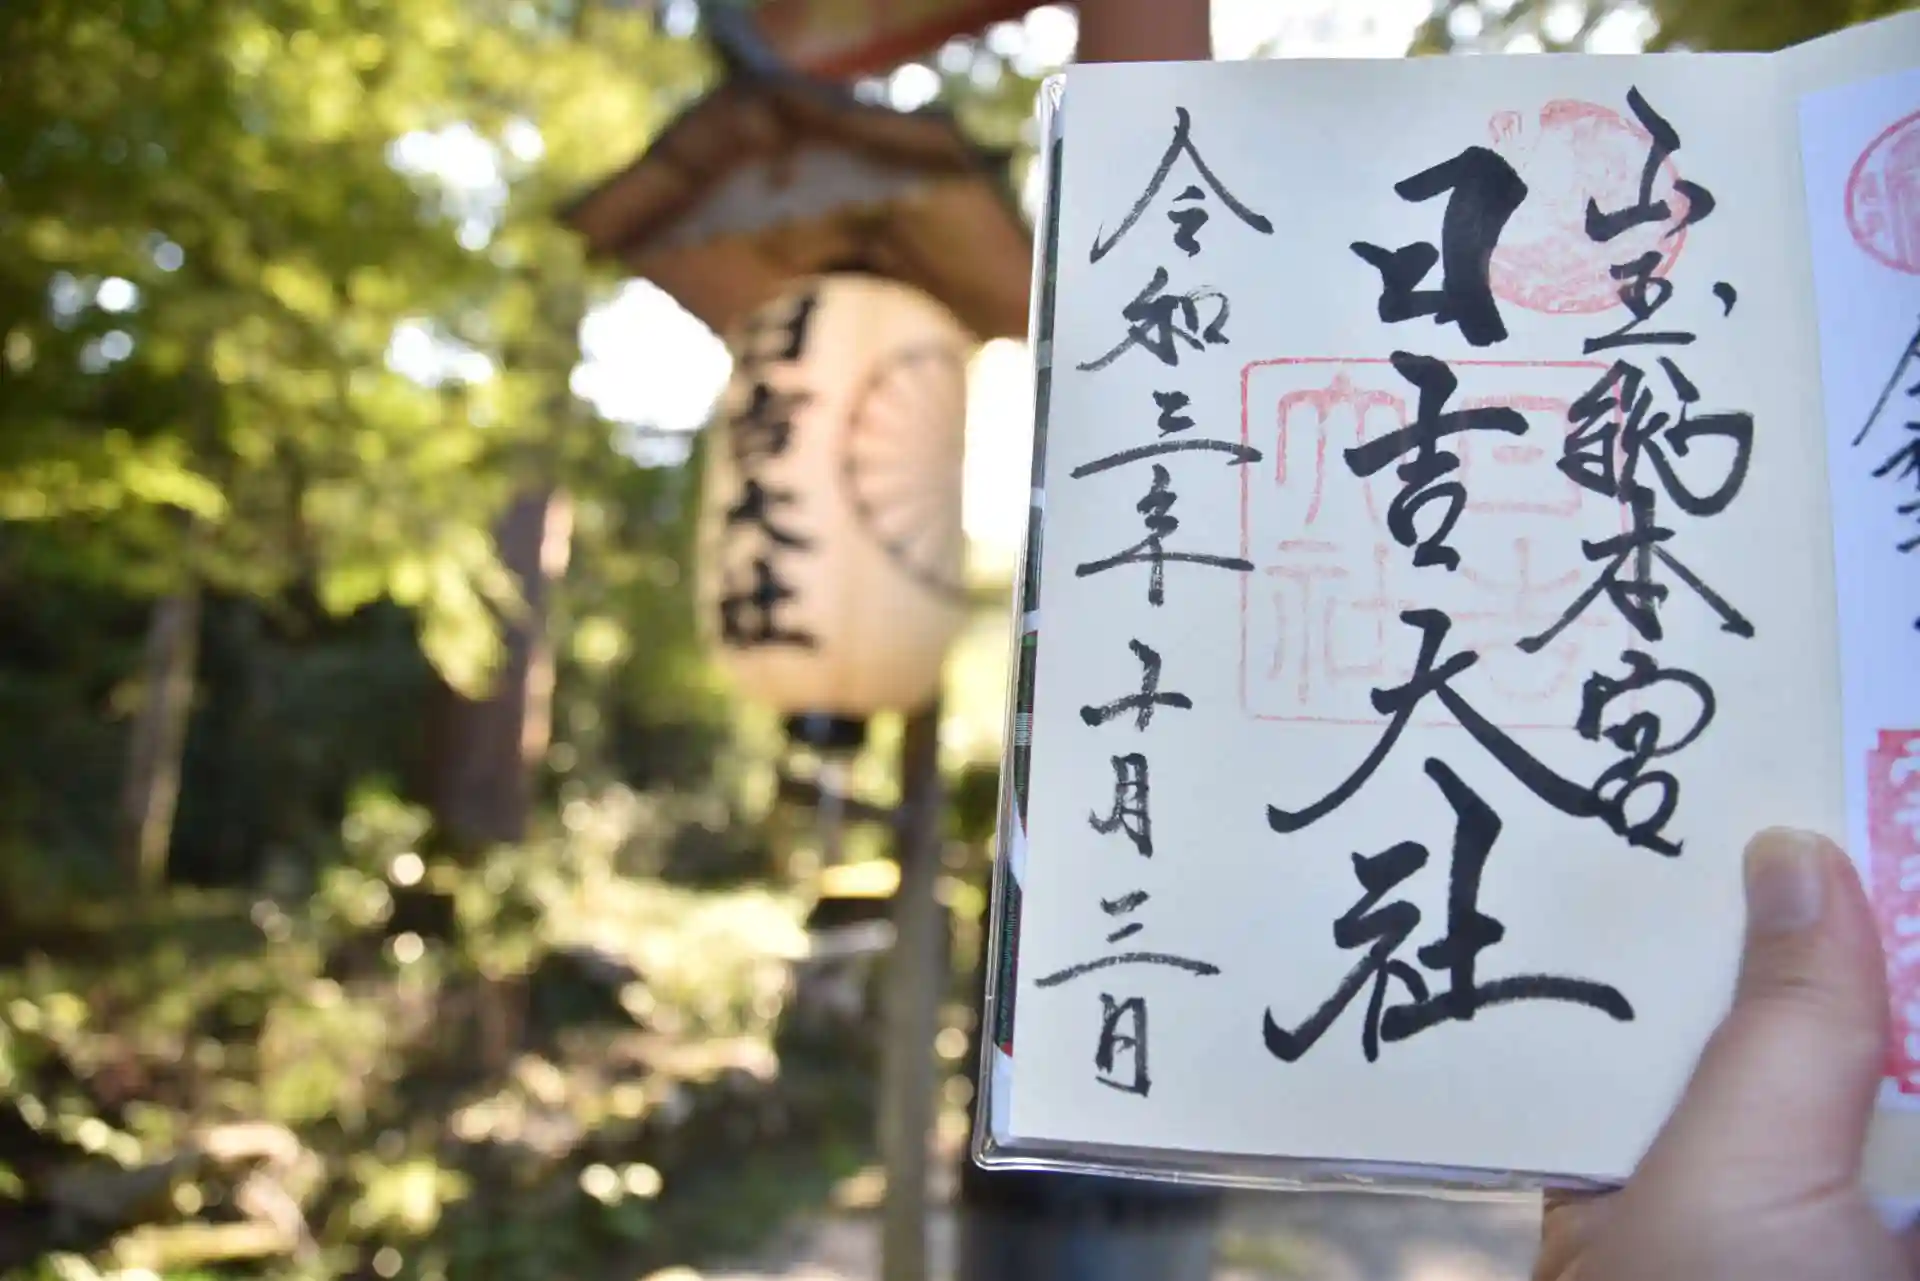 山王総本宮
日吉大社
令和三年十月三日
日吉大社
日吉大社